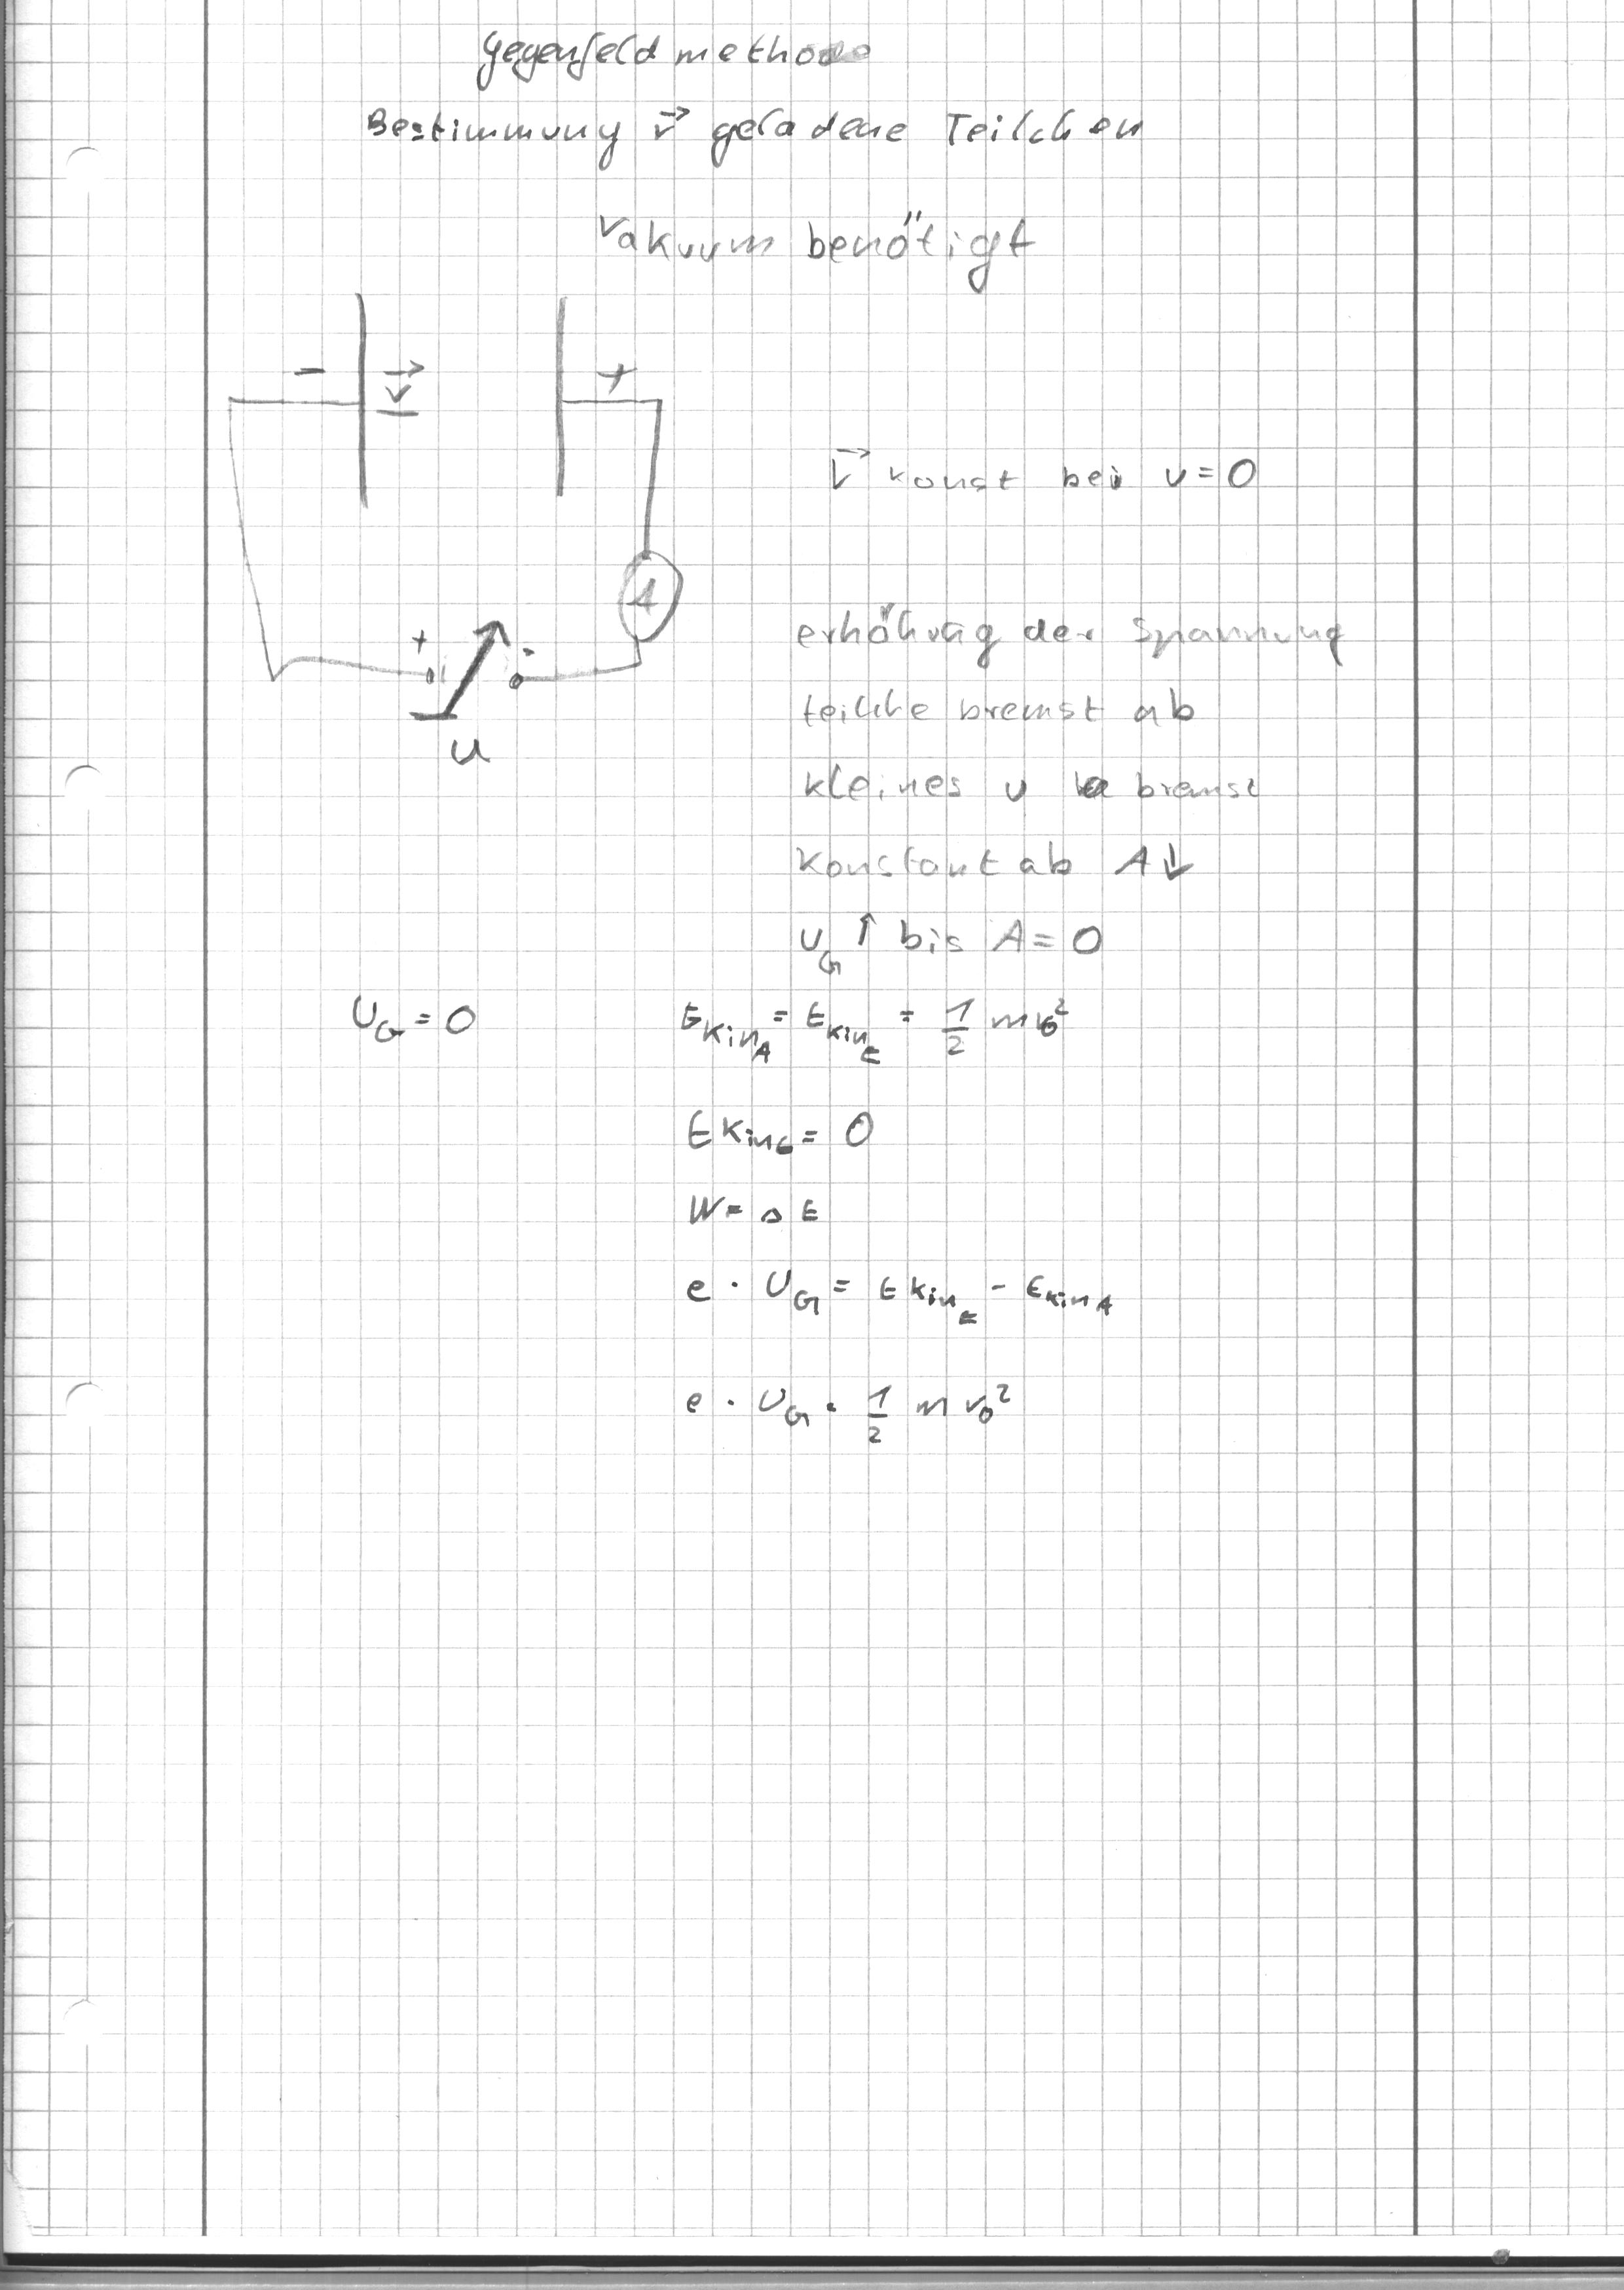 Gegenfeldmethode
Bestimmung v⃗ geladene Teilchen
Vakuum benötigt
- v⃗ +
v⃗ konst bei U=0
A
erhöhung der Spannung
+ -
teilche bremst ab
U
kleines U bremst
konstant ab A↓
U_G ↑ bis A=0
U_G=0 E_kin_A = E_kin_E = 1/2 m v₀²
E_kin_E = 0
W= ΔE
e · U_G = E_kin_E - E_kin_A
e · U_G = 1/2 m v₀²